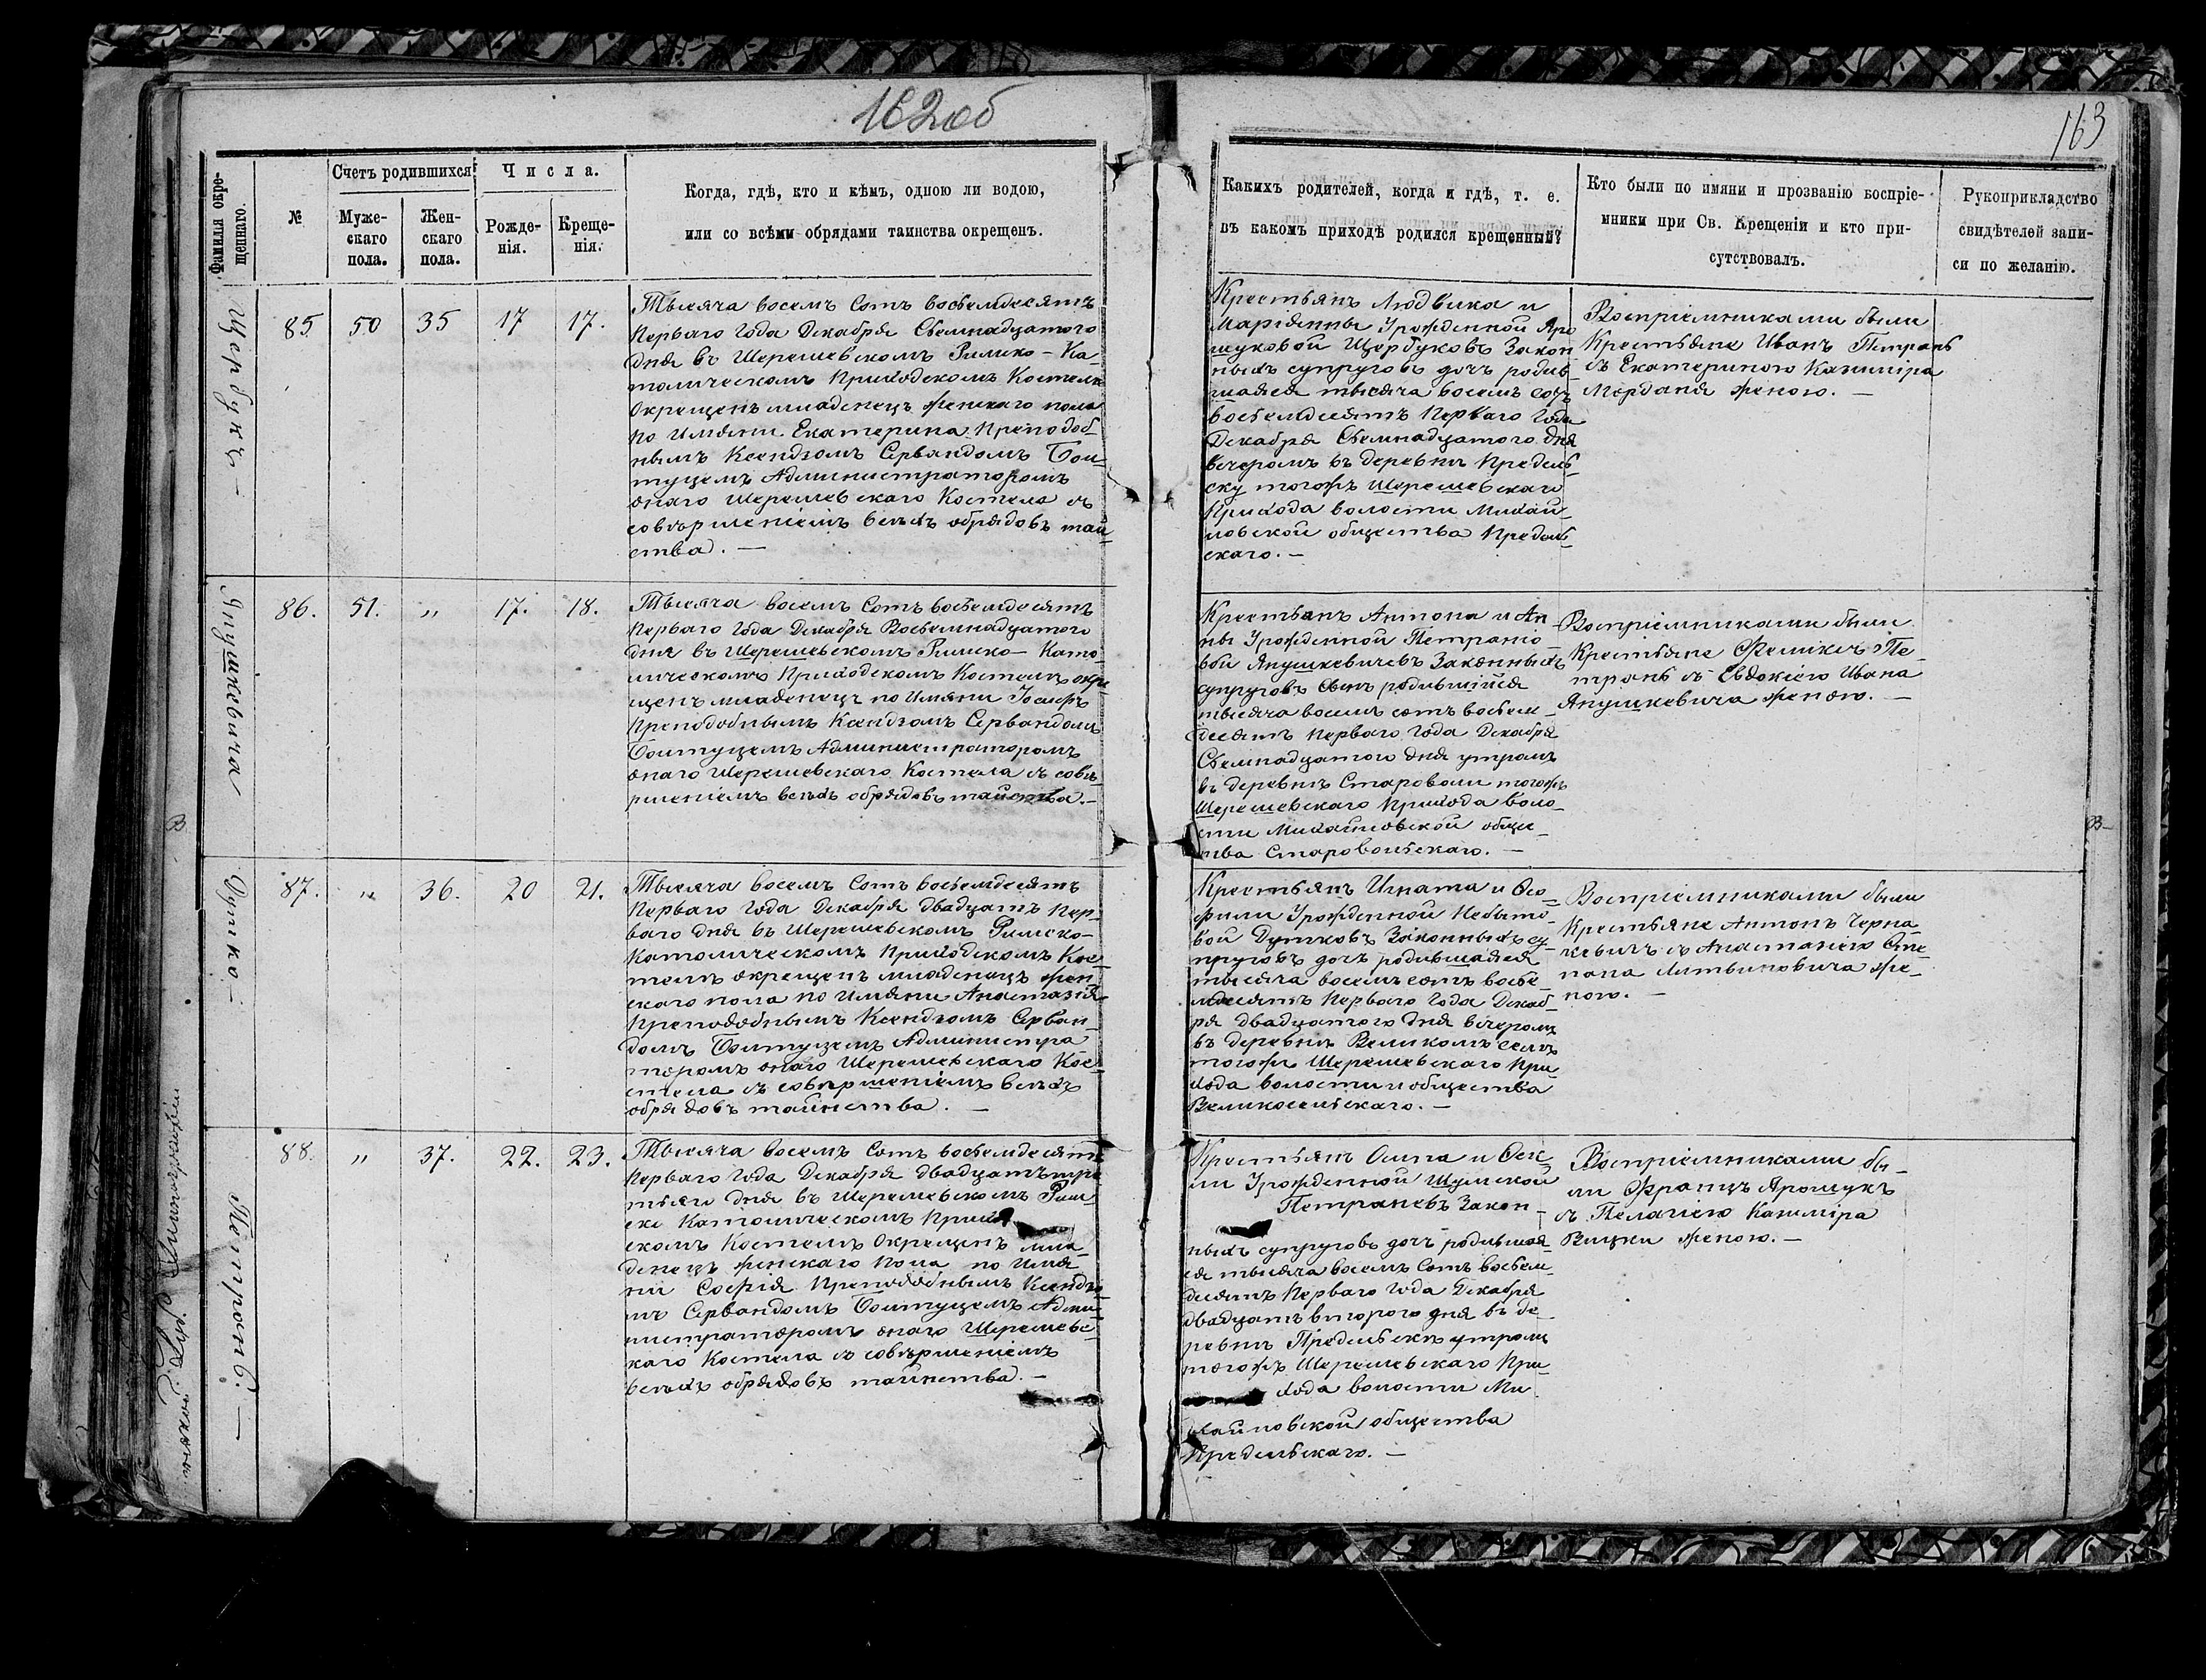 162об
163
Фамилія окре-
щеннаго.
№
Счетъ родившихся
Муже-
скаго
пола.
Жен-
скаго
пола.
Числа.
Рожде-
нія.
Креще-
нія.
Когда, гдѣ, кто и кѣмъ, одною ли водою,
или со всѣми обрядами таинства окрещенъ.
Какихъ родителей, когда и гдѣ, т. е.
въ какомъ приходѣ родился крещенный?
Кто были по имяни и прозванію воспріе-
мники при Св. Крещеніи и кто при-
сутствовалъ.
Рукоприкладство
свидѣтелей запи-
си по желанію.
Щербукъ —
85 50 35 17 17.
Тысяча восемъ Сотъ восѣемдесятъ
Перваго Года Декабря Сѣемнадцатого
дня въ Шерешевскомъ Римско-Ка
толическомъ Приходскомъ Костелѣ
Окрещенъ младенецъ женскаго пола
по Имяни Екатерина Преподоб
нымъ Ксендзомъ Сервандомъ Бол-
туцемъ Администраторомъ
онаго Шерешевскаго Костела съ
совѣршеніемъ всѣхъ обрядовъ таи-
ства. —
Крестьянъ Людвика и
Маріянны Урожденной Яро
щуковой Щербуковъ Закон
ныхъ супруговъ дочь родив-
шаяся тысяча восемъ сотъ
восѣемдесятъ Перваго Года
Декабря Сѣемнадцатого дня
вечеромъ въ деревнѣ Предель-
ску тогожъ Шерешевскаго
Прихода волости Михай-
ловской общества Предель-
скаго. —
Воспріемниками были
Крестьяне Иванъ Петрань
съ Екатериною Казиміра
Морданя женою. —
Янушкевича
86. 51. „ 17. 18.
Тысяча восемъ Сотъ восѣемдесятъ
Перваго Года Декабря Восѣемнадцатого
дня въ Шерешевскомъ Римско-Като-
лическомъ Приходскомъ Костелѣ окре
щенъ младенецъ по Имяни Іосифъ
Преподобнымъ Ксендзомъ Сервандомъ
Болтуцемъ Администраторомъ
онаго Шерешевскаго Костела съ совѣ
ршеніемъ всѣхъ обрядовъ таиства. —
Крестьянъ Антона и Ан-
ны Урожденной Петраніо-
вой Янушкевичевъ Законныхъ
супруговъ Сынъ родившійся
тысяча восемъ сотъ восѣем-
десятъ Перваго Года Декабря
Сѣемнадцатого дня утромъ
въ деревнѣ Староволи тогожъ
Шерешевскаго Прихода воло-
сти Михайловской обще-
тва Старовольскаго. —
Воспріемниками были
Крестьяне Феликсъ Пе-
трань съ Евдокіею Ивана
Янушкевича женою. —
Дутко —
87. „ 36. 20 21.
Тысяча восемъ Сотъ восѣемдесятъ
Перваго Года Декабря двадцатъ Пер-
ваго дня въ Шерешевскомъ Римско-
Католическомъ Приходскомъ Кос-
телѣ окрещенъ младенецъ жен
скаго пола по Имяни Анастазія
Преподобнымъ Ксендзомъ Серван-
домъ Болтуцемъ Администра
торомъ онаго Шерешевскаго Кос-
стела съ совѣршеніемъ всѣхъ
обрядовъ таинства. —
Крестьянъ Игната и Ѳео-
фили Урожденной Небыто-
вой Дутковъ Законныхъ су-
пруговъ дочь родившаяся
тысяча восемъ сотъ восѣе-
мдесятъ Перваго Года Декаб-
ря двадцатого дня вечеромъ
въ деревнѣ Великомъ селѣ
тогожъ Шерешевскаго При-
хода волости и общества
Великосельскаго. —
Воспріемниками были
Крестьяне Антонъ Черна-
кевичъ съ Анастазіею Сте-
пана Литвиновича же-
ною. —
Петрань. —
88. „ 37. 22. 23.
Тысяча восемъ Сотъ восѣемдесятъ
Перваго Года Декабря двадцатътре
тьяго дня въ Шерешевскомъ Рим
ско Католическомъ Приход
скомъ Костелѣ Окрещенъ мла-
денецъ женскаго Пола по Имя
ни Софія Преподобнымъ Ксендзо
мъ Сервандомъ Болтуцемъ Адми-
нистраторомъ онаго Шерешевс-
каго Костела съ совѣршеніемъ
всѣхъ обрядовъ таинства. —
Крестьянъ Осипа и Ѳек-
ли Урожденной Шумской
Петраневъ Закон-
ныхъ супруговъ дочь родившая-
ся тысяча восемъ Сотъ восѣем-
десятъ Перваго Года Декабря
двадцатъвторого дня въ де-
ревнѣ Предельскѣ утромъ
тогожъ Шерешевскаго При-
хода волости Ми
хайловской общества
Предельскаго. —
Воспріемниками бы-
ли Францъ Ярошукъ
съ Пелагіею Казиміра
Вицки женою. —